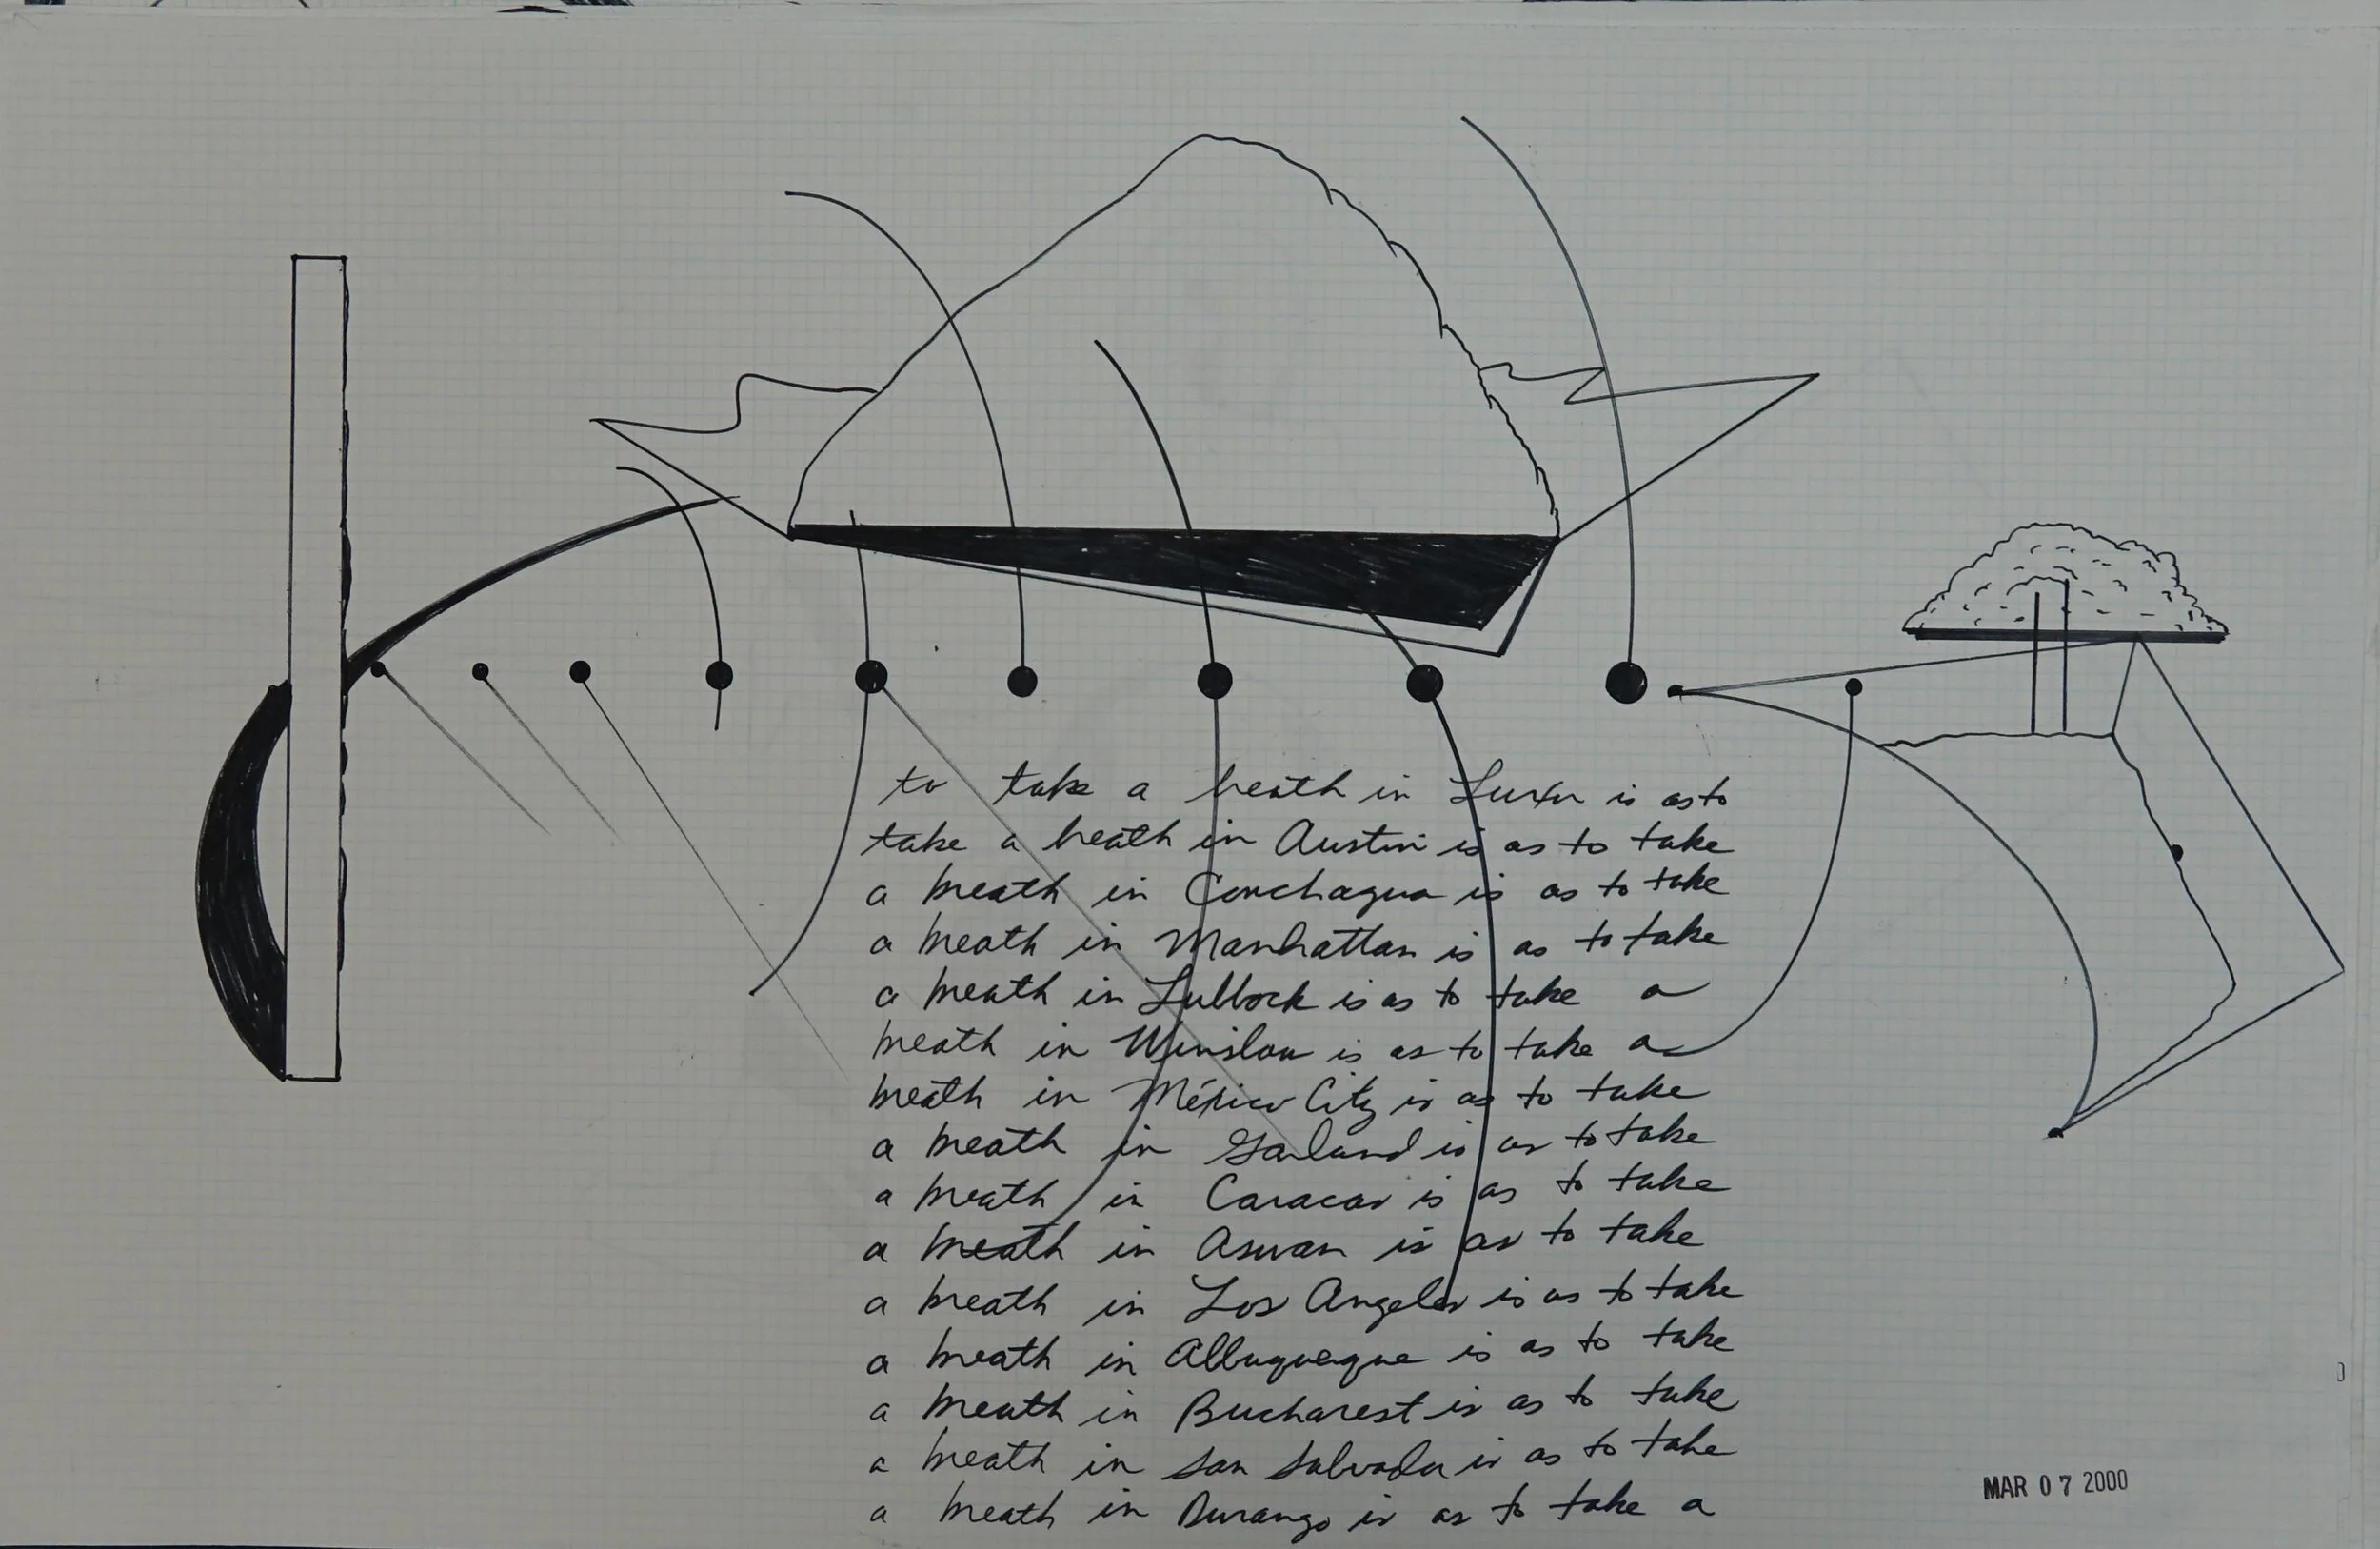 to take a breath in Luxor is as to
take a breath in Austin is as to take
a breath in Conchagua is as to take
a breath in Manhattan is as to take
a breath in Lubbock is as to take a
breath in Winslow is as to take a
breath in México City is as to take
a breath in Garland is as to take
a breath in Caracas is as to take
a breath in Aswan is as to take
a breath in Los Angeles is as to take
a breath in Albuquerque is as to take
a breath in Bucharest is as to take
a breath in San Salvador is as to take
a breath in Durango is as to take a
MAR 07 2000